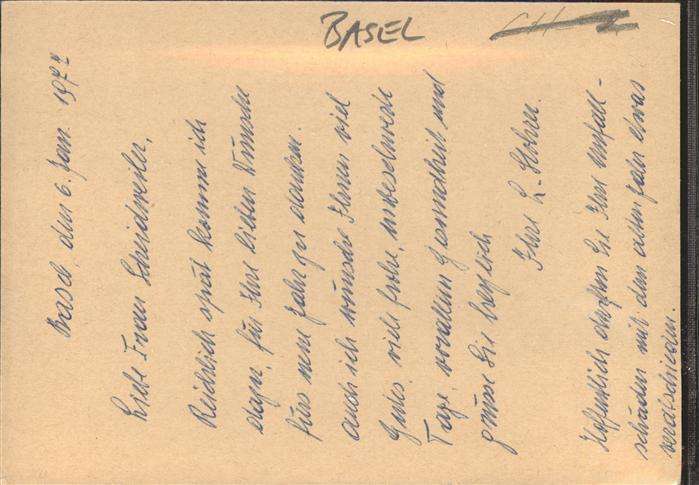 BASEL
Basel, den 6. Jan. 1977
Liebe Frau Scheidweiler,
Reichlich spät komme ich
dazu, für Ihre lieben Wünsche
fürs neue Jahr zu danken.
Auch ich wünsche Ihnen viel
Gutes, viele frohe, unbeschwerte
Tage, vorallem Gesundheit und
grüsse Sie herzlich
Ihre L.
Hoffentlich durften Sie Ihre Unfall-
schäden mit dem alten Jahr etwas
verabschieden.